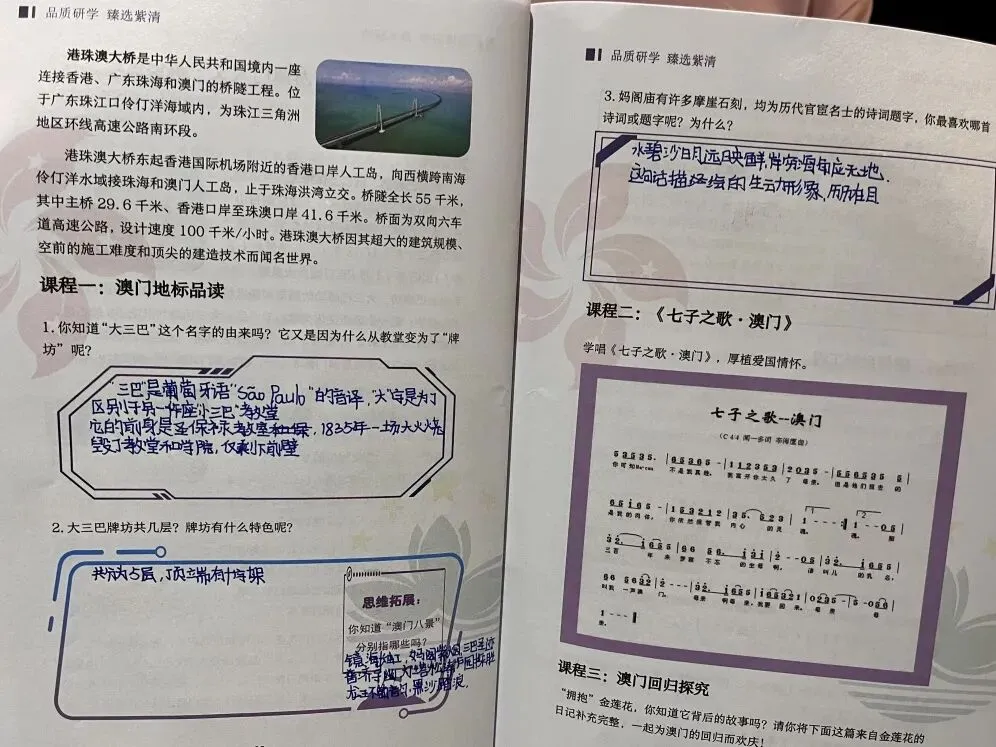 品质研学 臻选紫清
港珠澳大桥是中华人民共和国境内一座
连接香港、广东珠海和澳门的桥隧工程。位
于广东珠江口伶仃洋海域内，为珠江三角洲
地区环线高速公路南环段。
港珠澳大桥东起香港国际机场附近的香港口岸人工岛，向西横跨南海
伶仃洋水域接珠海和澳门人工岛，止于珠海洪湾立交。桥隧全长 55 千米，
其中主桥 29.6 千米、香港口岸至珠澳口岸 41.6 千米。桥面为双向六车
道高速公路，设计速度 100 千米/小时。港珠澳大桥因其超大的建筑规模、
空前的施工难度和顶尖的建造技术而闻名世界。
课程一：澳门地标品读
1. 你知道“大三巴”这个名字的由来吗？它又是因为什么从教堂变为了“牌
坊”呢？
“三巴”是葡萄牙语“São Paulo”的音译，“大”字是为了
区别于另一座“小三巴”教堂
它的前身是圣保禄教堂，1835年一场大火烧
毁了教堂和学院，仅剩前壁
2. 大三巴牌坊共几层？牌坊有什么特色呢？
共分为5层，顶端有十字架
思维拓展：
你知道“澳门八景”
分别指哪些吗？
镜海长虹，妈阁紫烟，三巴圣迹
黑沙踏浪，
品质研学 臻选紫清
3. 妈阁庙有许多摩崖石刻，均为历代官宦名士的诗词题字，你最喜欢哪首
诗词或题字呢？为什么？
水碧沙明远映鲜，
这句话描绘的生动形象，
课程二：《七子之歌·澳门》
学唱《七子之歌·澳门》，厚植爱国情怀。
七子之歌--澳门
你可知Macau 不是我真姓。 我离开你太久了 母亲。 但是他们掳去的
是我的肉体， 你依然保管我 内心的灵 魂。 魂。 那
三百年来梦寐不忘的生母啊， 请叫儿的乳名，
叫我一声澳门。 母亲啊母亲，我要回来，母亲母
亲。
课程三：澳门回归探究
“拥抱”金莲花，你知道它背后的故事吗？请你将下面这篇来自金莲花的
日记补充完整，一起为澳门的回归而欢庆！